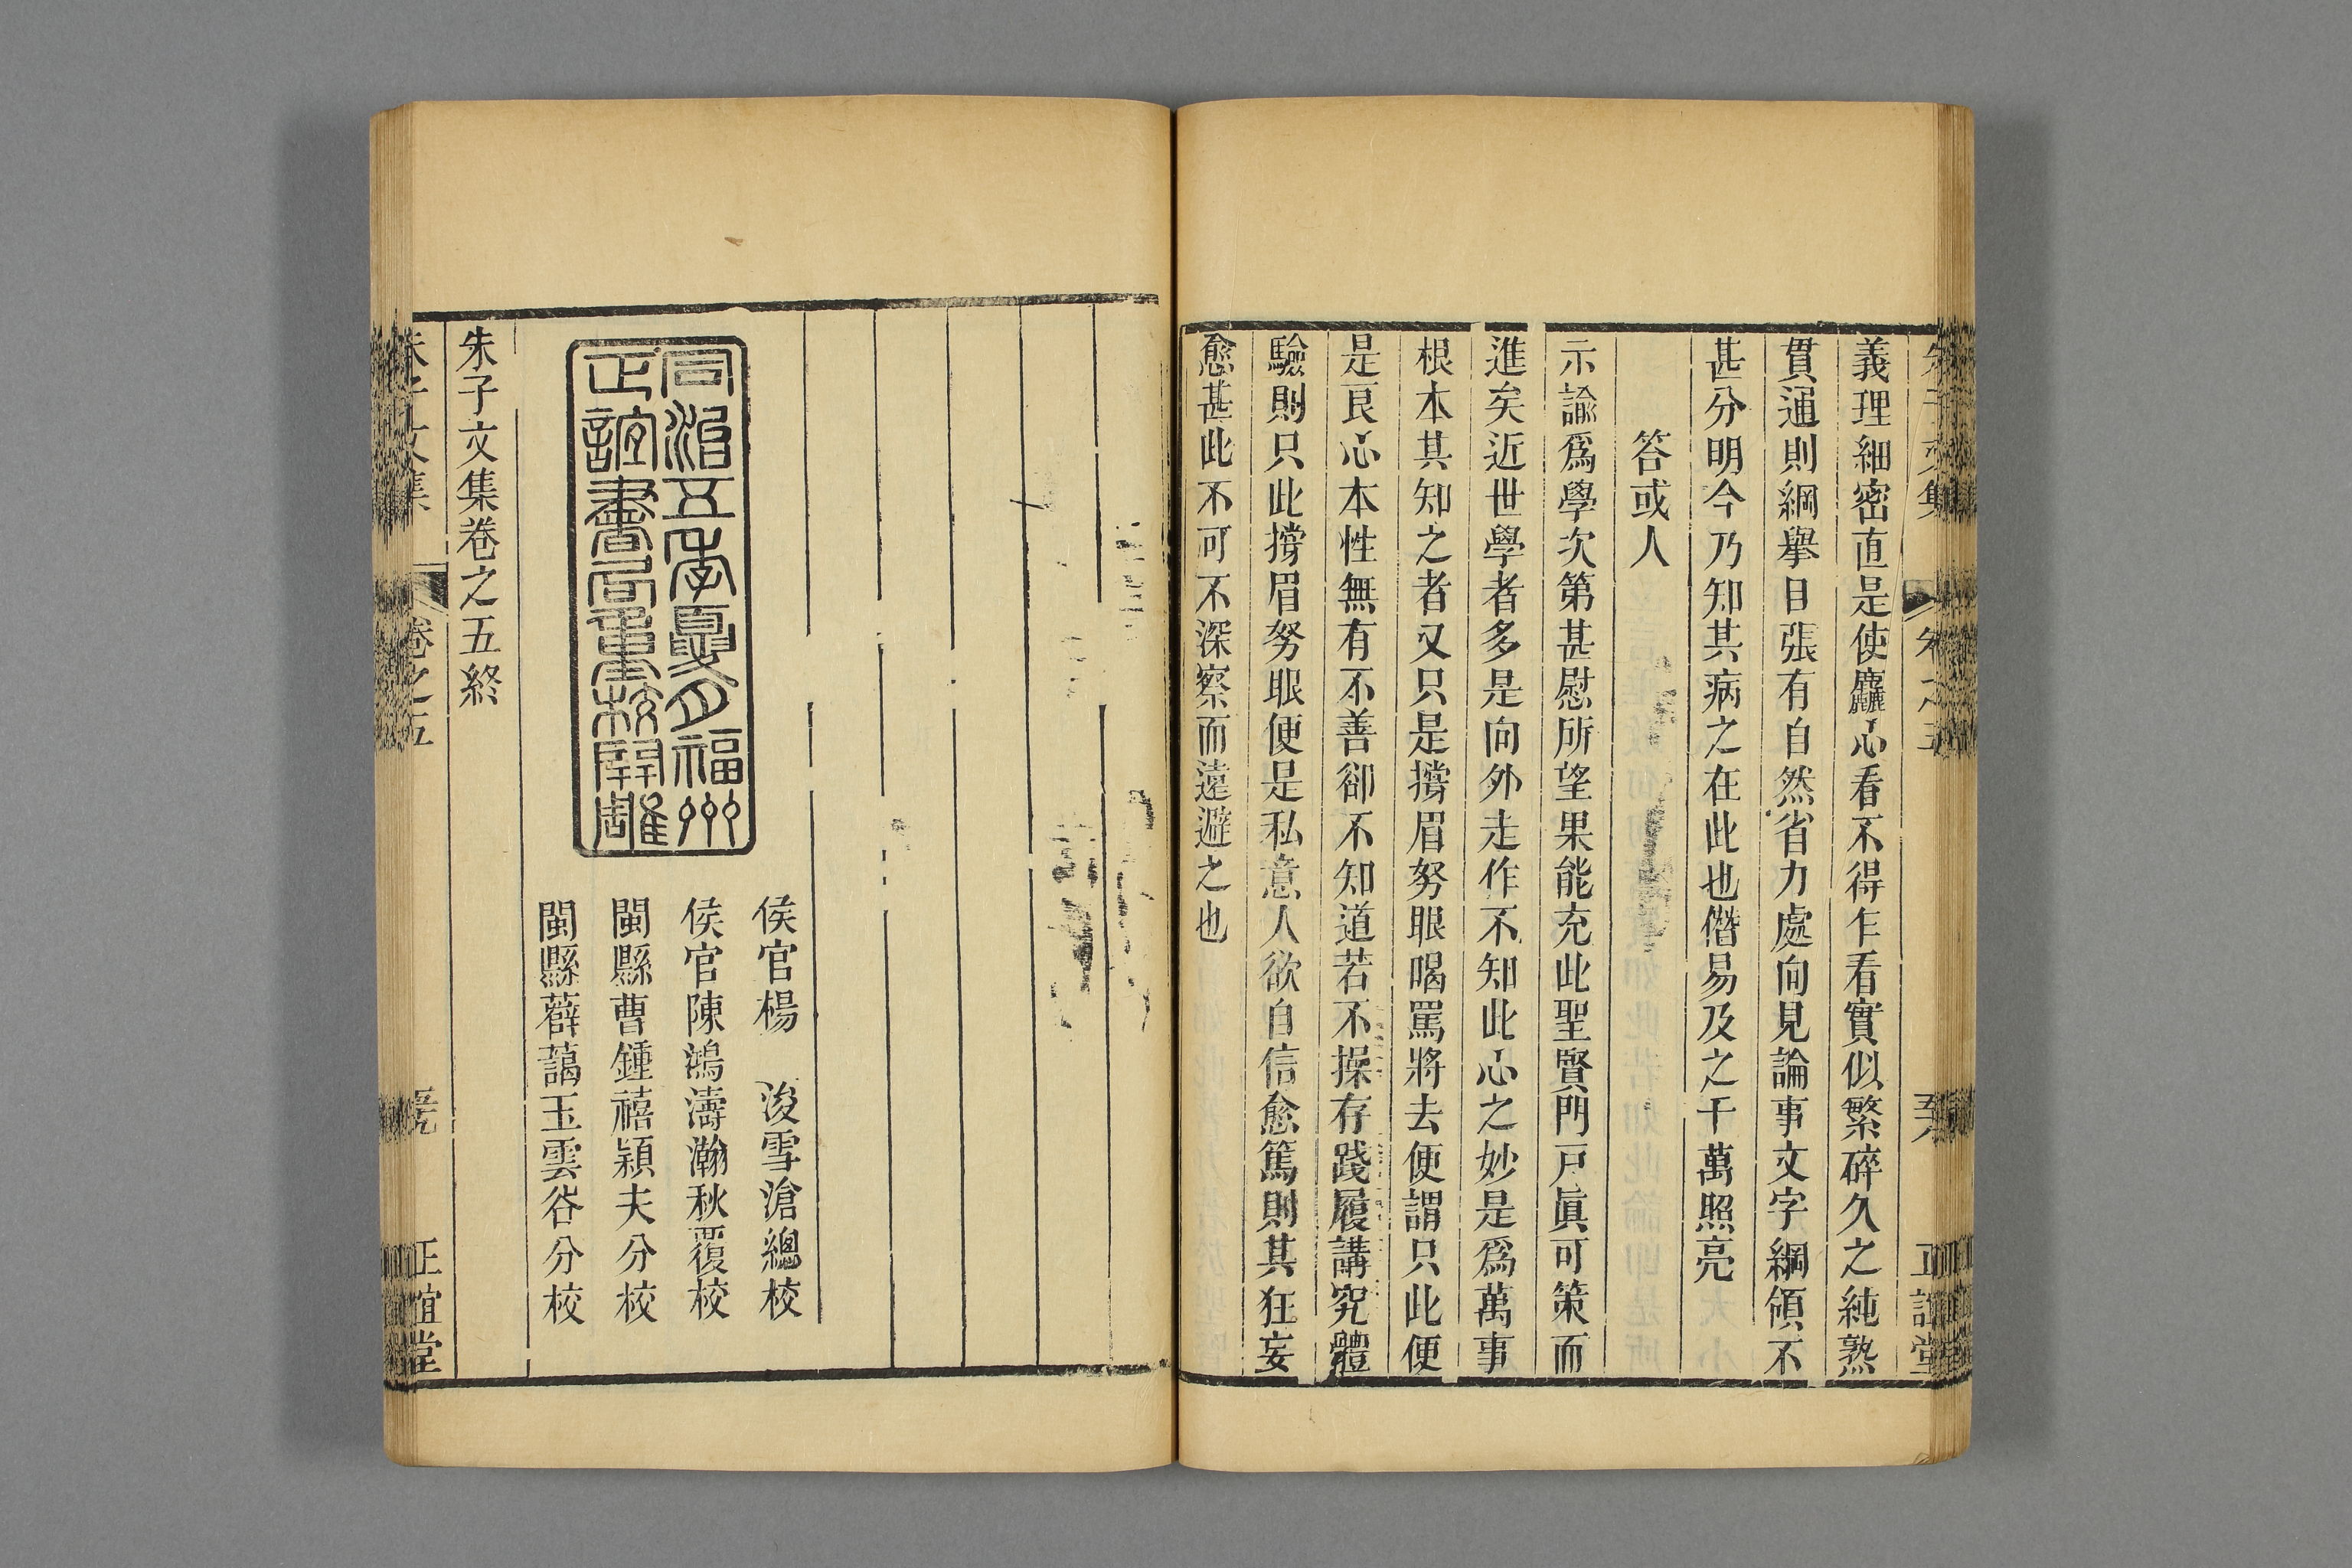 義理細密直是使麤心看不得乍看實似繁碎久之純熟
貫通則綱舉目張有自然省力處向見論事文字綱領不
甚分明今乃知其病之在此也僭易及之千萬照亮
答或人
示諭爲學次第甚慰所望果能充此聖賢門戸眞可策而
進矣近世學者多是向外走作不知此心之妙是爲萬事
根本其知之者又只是撐眉努眼喝罵將去便謂只此便
是良心本性無有不善卻不知道若不操存踐履講究體
驗則只此撐眉努眼便是私意人欲自信愈篤則其狂妄
愈甚此不可不深察而遠避之也
侯官楊　浚雪滄總校
侯官陳鴻濤瀚秋覆校
閩縣曹鍾禧穎夫分校
閩縣薛藹玉雲谷分校
同治五年夏月福州
正誼書局重校開雕
朱子文集卷之五終
朱子文集
卷之五
正誼堂